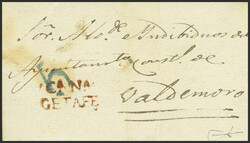 Sōr. Alc.e e Indibiduos de
Ayuntamto. Constl. de
Valdemoro
CANA
GETAFE